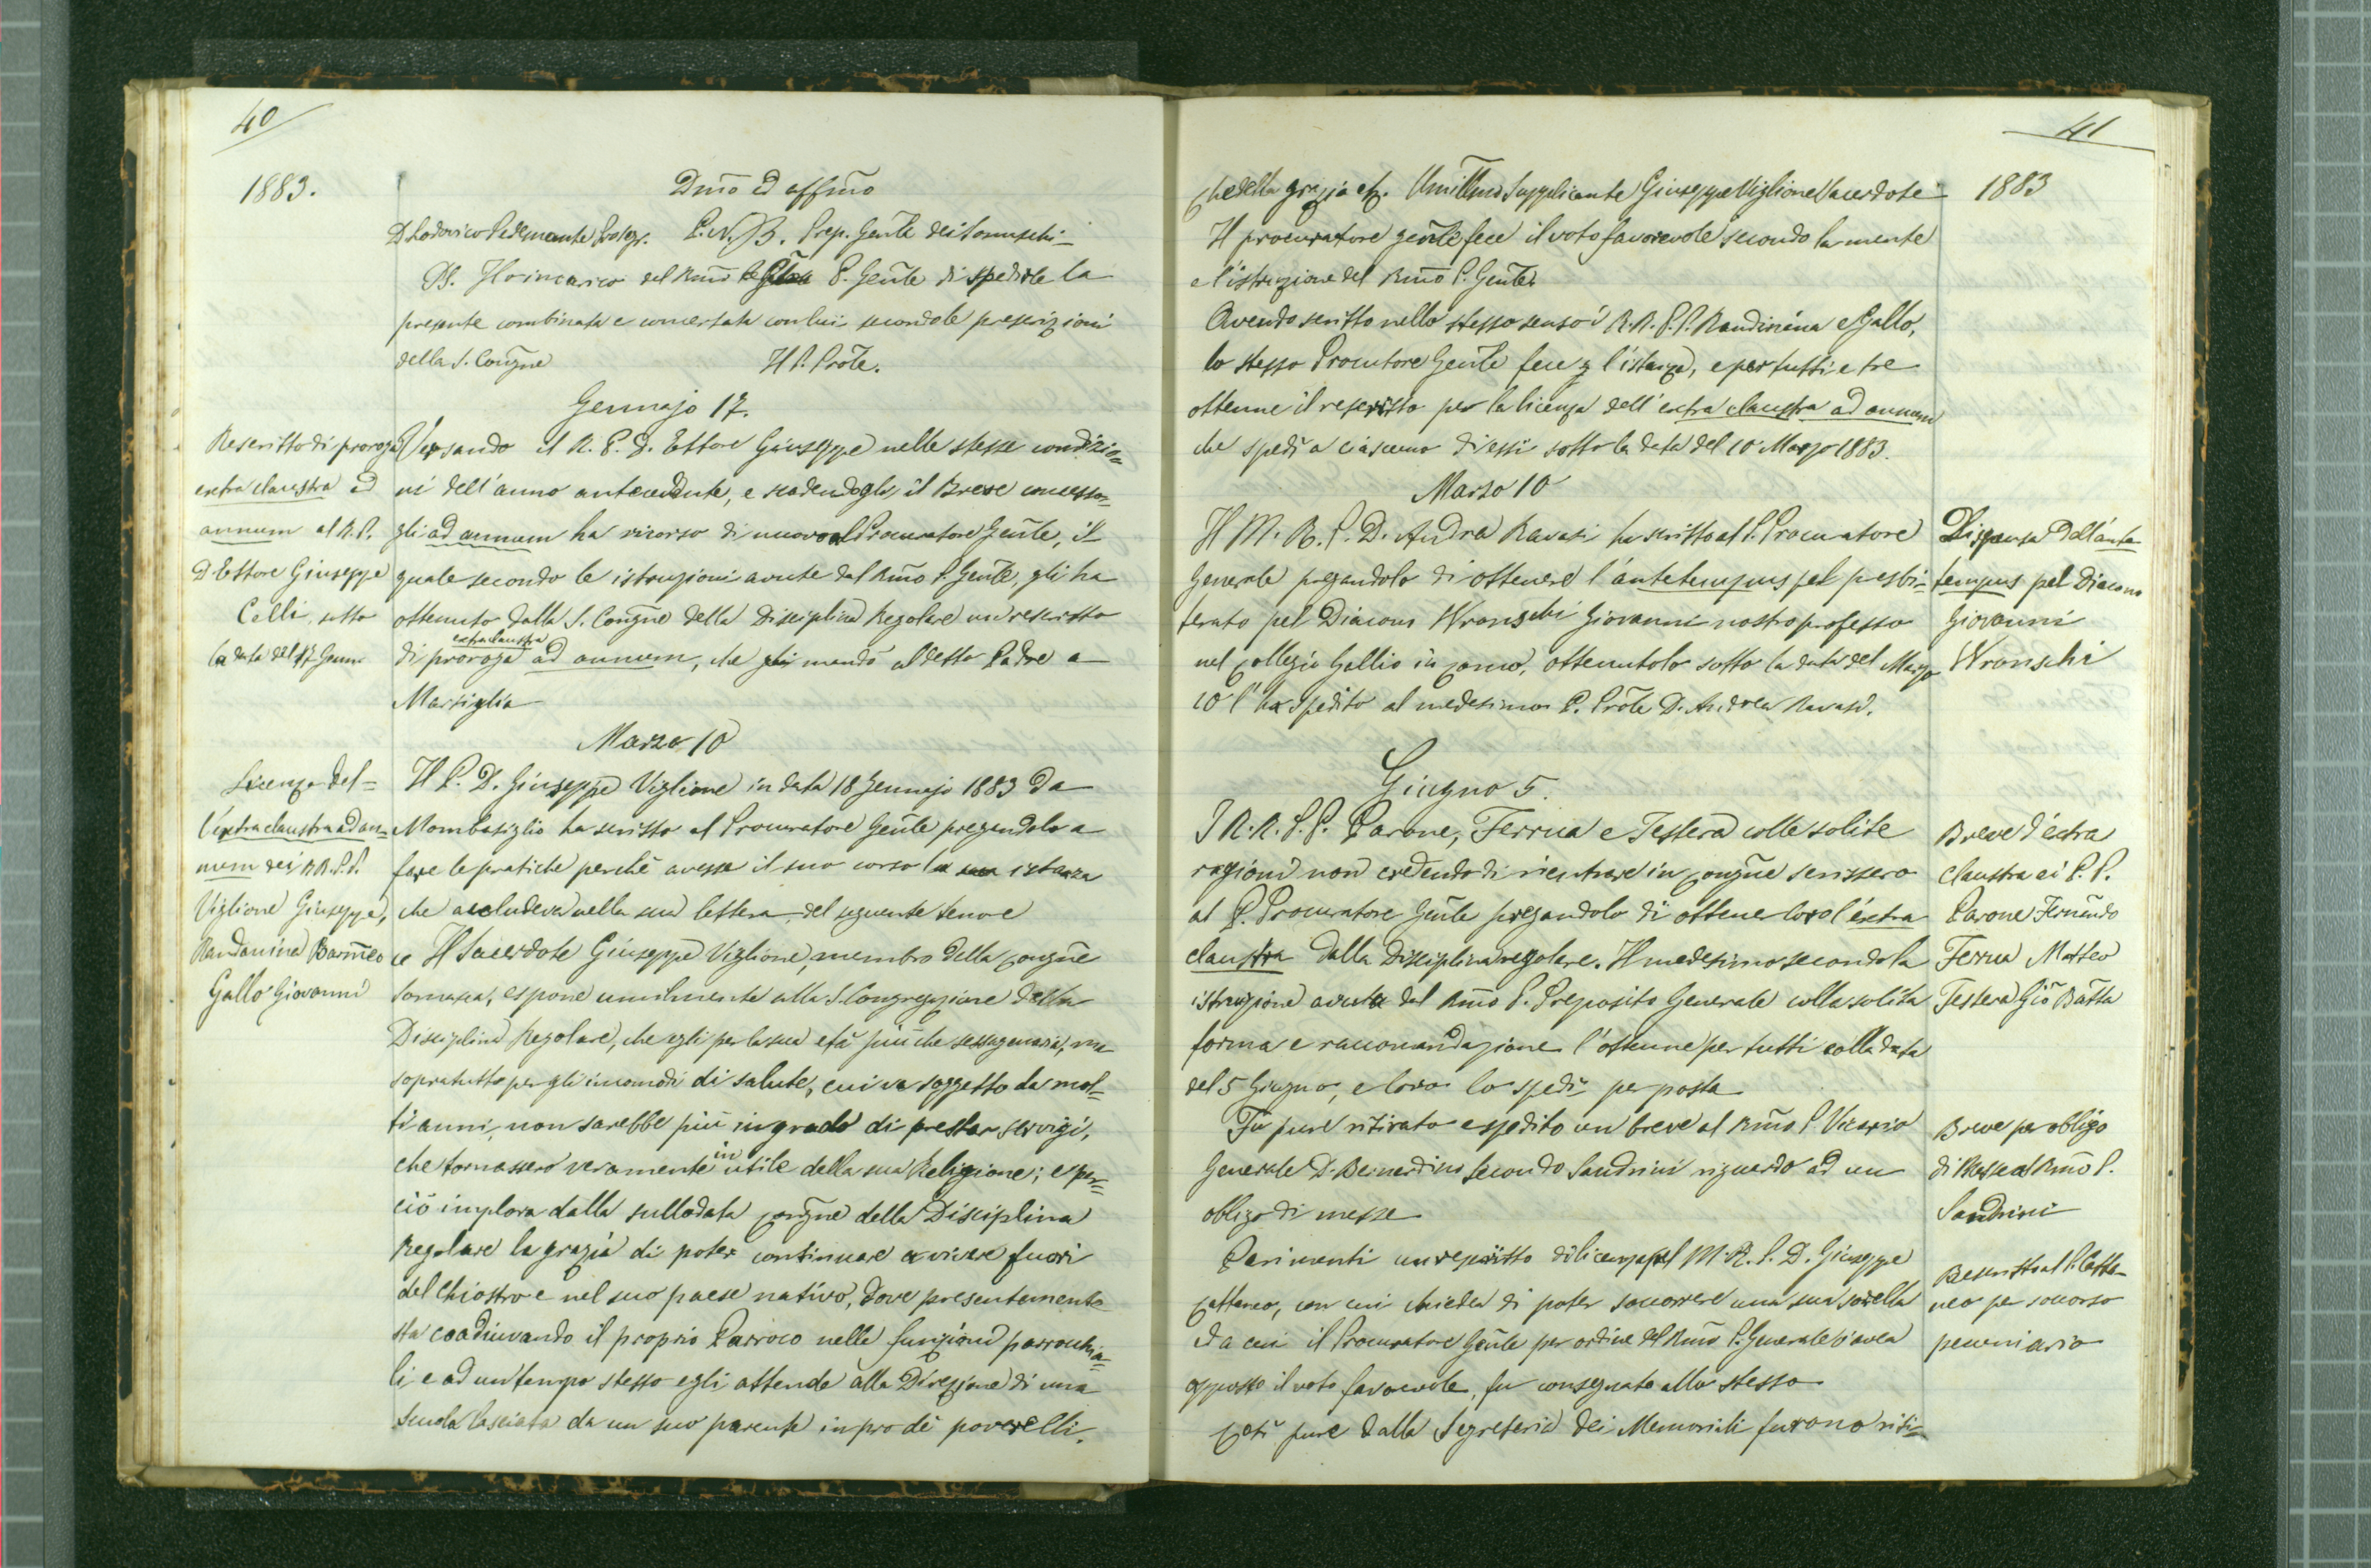 40
1883.
Dmo ed affmo
D. Lodovico Pedemonte P. N. B. Prep. Genle dei Somaschi
PS. Ho incarico del Rmo P. Genle di spedirle la
presente combinata e concertata con lui secondo le prescrizioni
della S. Congne Il P. Prole.
Gennajo 17.
Rescritto di proroga
extra claustra ad
annum al R. P.
D. Ettore Giuseppe
Celli, sotto
la data del 17 Genn
Versando il R. P. D. Ettore Giuseppe nelle stesse condizio=
ni dell'anno antecedente, e scadendogli il Breve concesso=
gli ad annum ha ricorso di nuovo al Procuratore Genle, il
quale secondo le istruzioni avute dal Rmo P. Genle, gli ha
ottenuto dalla S. Congne della Disciplina Regolare un rescritto
di proroga extra claustra ad annum, che mandò al detto Padre a
Marsiglia
Marzo 10
Licenza del=
l'extra claustra ad an=
num dei RR. P.P.
Viglione Giuseppe,
Randanina Barmeo
Gallo Giovanni
Il P. D. Giuseppe Viglione in data 18 Gennajo 1883 da
Mombasiglio ha scritto al Procuratore Genle pregandolo a
fare le pratiche perchè avesse il suo corso la sua istanza
che accludeva nella sua lettera del seguente tenore
" Il Sacerdote Giuseppe Viglione, membro della Congne
Somasca, espone umilmente alla S. Congregazione della
Disciplina Regolare, che egli per la sua età più che sessagenaria, ma
sopratutto per gli incomodi di salute, cui va soggetto da mol=
ti anni, non sarebbe più in grado di prestar servigi,
che tornassero veramente in utile della sua Religione; e per=
ciò implora dalla sullodata Congne della Disciplina
Regolare la grazia di poter continuare a vivere fuori
del Chiostro e nel suo paese nativo, dove presentemente
sta coadiuvando il proprio Parroco nelle funzioni parrocchia=
li e ad un tempo stesso egli attende alla Direzione di una
scuola lasciata da un suo parente in pro de' poverelli.
41
1883
Che della grazia etc. Umillmo Supplicante Giuseppe Viglione Sacerdote
Il procuratore genle fece il voto favorevole secondo la mente
e l'istruzione del Rmo P. Genle.
Avendo scritto nello stesso senso i R.R. P.P. Randinina e Gallo,
lo stesso Procutore Genle fece l'istanza, e per tutti e tre
ottenne il rescritto per la licenza dell'extra claustra ad annum
che spedì a ciascuno di essi sotto la data del 10 Marzo 1883.
Marzo 10
Il M. R. P. D. Andrea Ravasi ha scritto al P. Procuratore
Generale pregandolo di ottenere l'antetempus pel presbi=
terato pel Diacono Wronschi Giovanni nostro professo
nel Collegio Gallio in Como, ottenutolo sotto la data del Marzo
10 l'ha spedito al medesimo P. Prole D. Andrea Ravasi.
Dispensa dall'ante
tempus pel Diacono
Giovanni
Wronschi
Giugno 5.
I R.R. P.P. Parone, Ferrua e Testera colle solite
ragioni non credendo di rientrare in Congne scrissero
al P. Procuratore Genle pregandolo di ottener loro l'extra
claustra dalla Disciplina regolare. Il medesimo secondo la
istruzione avuta dal Rmo P. Preposito Generale colla solita
forma e raccomandazione l'ottenne per tutti colla data
del 5 Giugno, e loro lo spedì per posta
Breve d'extra
claustra ai P.P.
Parone Fernando
Ferrua Matteo
Testera Gio Batta
Fu pure ritirato e spedito un breve al Rmo P. Vicario
Generale D. Bernardino Secondo Sandrini riguardo ad un
obligo di messe
Breve per obligo
di Messe al Rmo P.
Sandrini
Parimenti un rescritto di licenza pel M. R. P. D. Giuseppe
Cattaneo, con cui chiedea di poter soccorrere una sua sorella
da cui il Procuratore Genle per ordine del Rmo P. Generale v'avea
apposto il voto favorevole, fu consegnato allo stesso
Rescritto al P. Catta=
neo per soccorso
pecuniario
Così pure dalla Segreteria dei Memoriali furono riti=